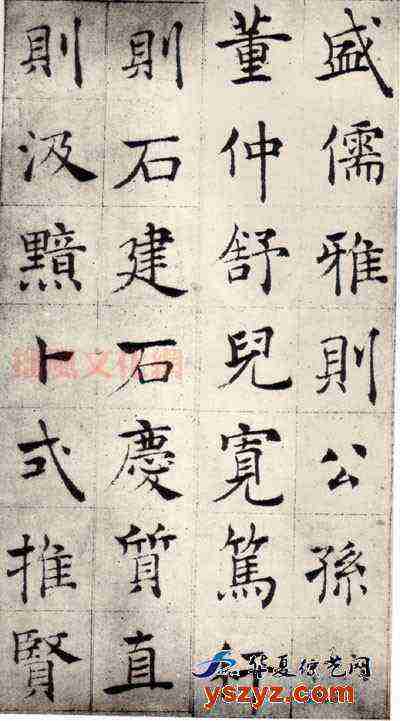 盛儒雅則公孫
董仲舒兒寬篤
則石建石慶質直
則汲黯卜式推賢
华夏综艺网
yszyz.com